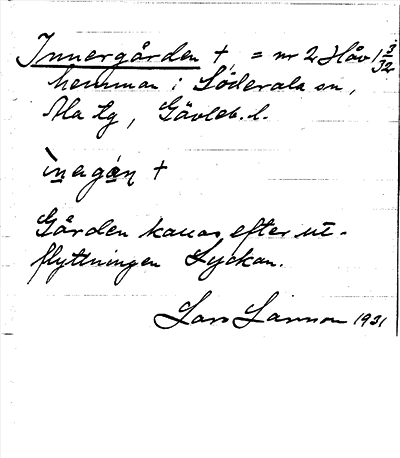 Innergården +, = nr 2 Håv 1 3/32
hemman i Söderala sn,
Ala hg, Gävleb. l.
ìnagá̱n +
Gården kallas efter ut-
flyttningen Lyckan.
Lars Larsson 1931